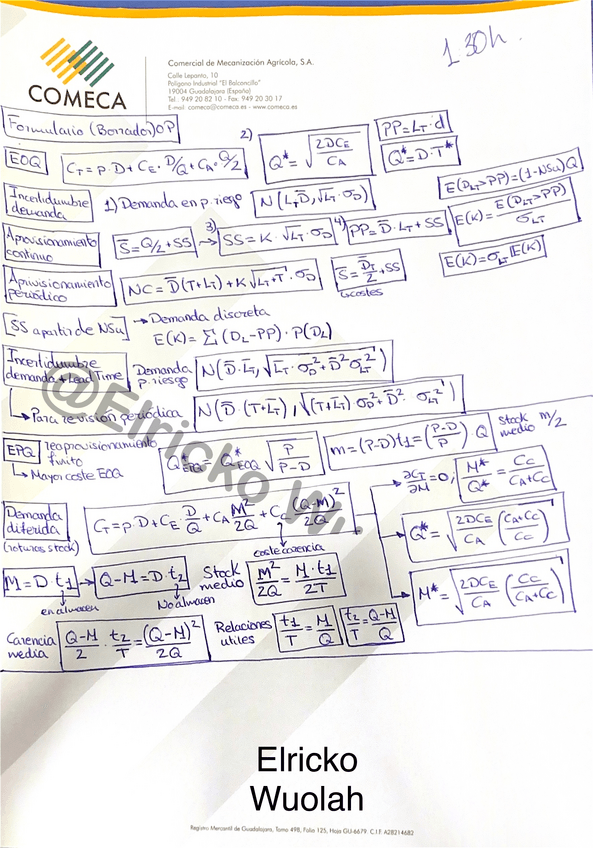 COMECA
Comercial de Mecanización Agrícola, S.A.
Calle Lepanto, 10
Polígono Industrial "El Balconcillo"
19004 Guadalajara (España)
Tel.: 949 20 82 10 - Fax: 949 20 30 17
E-mail: comeca@comeca.es - www.comeca.es
1 30h.
Formulario (Borrador) OP
EOQ C_T = p·D + C_E·D/Q + C_A·Q/2 2) Q* = √(2DC_E/C_A) PP = L_T·d
Q* = D·T*
Incertidumbre demanda 1) Demanda en p. riesgo N(L_T D̄, √L_T·σ_D) E(D_LT>PP) = (1-NSu)Q
Aprovisionamiento continuo S̄ = Q/2 + SS → 3) SS = K·√L_T·σ_D 4) PP = D̄·L_T + SS E(K) = E(D_LT>PP)/σ_LT
E(K) = σ_LT E(K)
Aprivisionamiento periódico NC = D̄(T+L_T) + K√(L_T+T)·σ_D S̄ = D̄_T/2 + SS
↳ costes
SS a partir de NSu → Demanda discreta
E(K) = Σ (D_L - PP)·P(D_L)
Incertidumbre demanda + Lead Time Demanda p. riesgo N(D̄·L̄_T, √(L̄_T·σ_D² + D̄²σ_LT²))
↳ Para revisión periódica N(D̄·(T+L̄_T), √((T+L̄_T)σ_D² + D̄²·σ_LT²))
EPQ reaprovisionamiento finito Q*_EPQ = Q*_EOQ √(P/(P-D)) m = (P-D)t₁ = ((P-D)/P) Q Stock medio m/2
↳ Mayor coste EOQ
∂C_T/∂M = 0; M*/Q* = C_C/(C_A+C_C)
Demanda diferida (roturas stock) C_T = p·D + C_E·D/Q + C_A M²/2Q + C_C (Q-M)²/2Q
↓ coste carencia
Q* = √(2DC_E/C_A ((C_A+C_C)/C_C))
M = D·t₁ → Q-M = D·t₂ Stock medio M²/2Q = M·t₁/2T
en almacen No almacen
M* = √(2DC_E/C_A (C_C/(C_A+C_C)))
Carencia media (Q-M)/2 · t₂/T = (Q-M)²/2Q Relaciones utiles t₁/T = M/Q t₂/T = (Q-M)/Q
@Elricko Wu..
Elricko
Wuolah
Registro Mercantil de Guadalajara, Tomo 498, Folio 125, Hoja GU-6679. C.I.F. A28214682